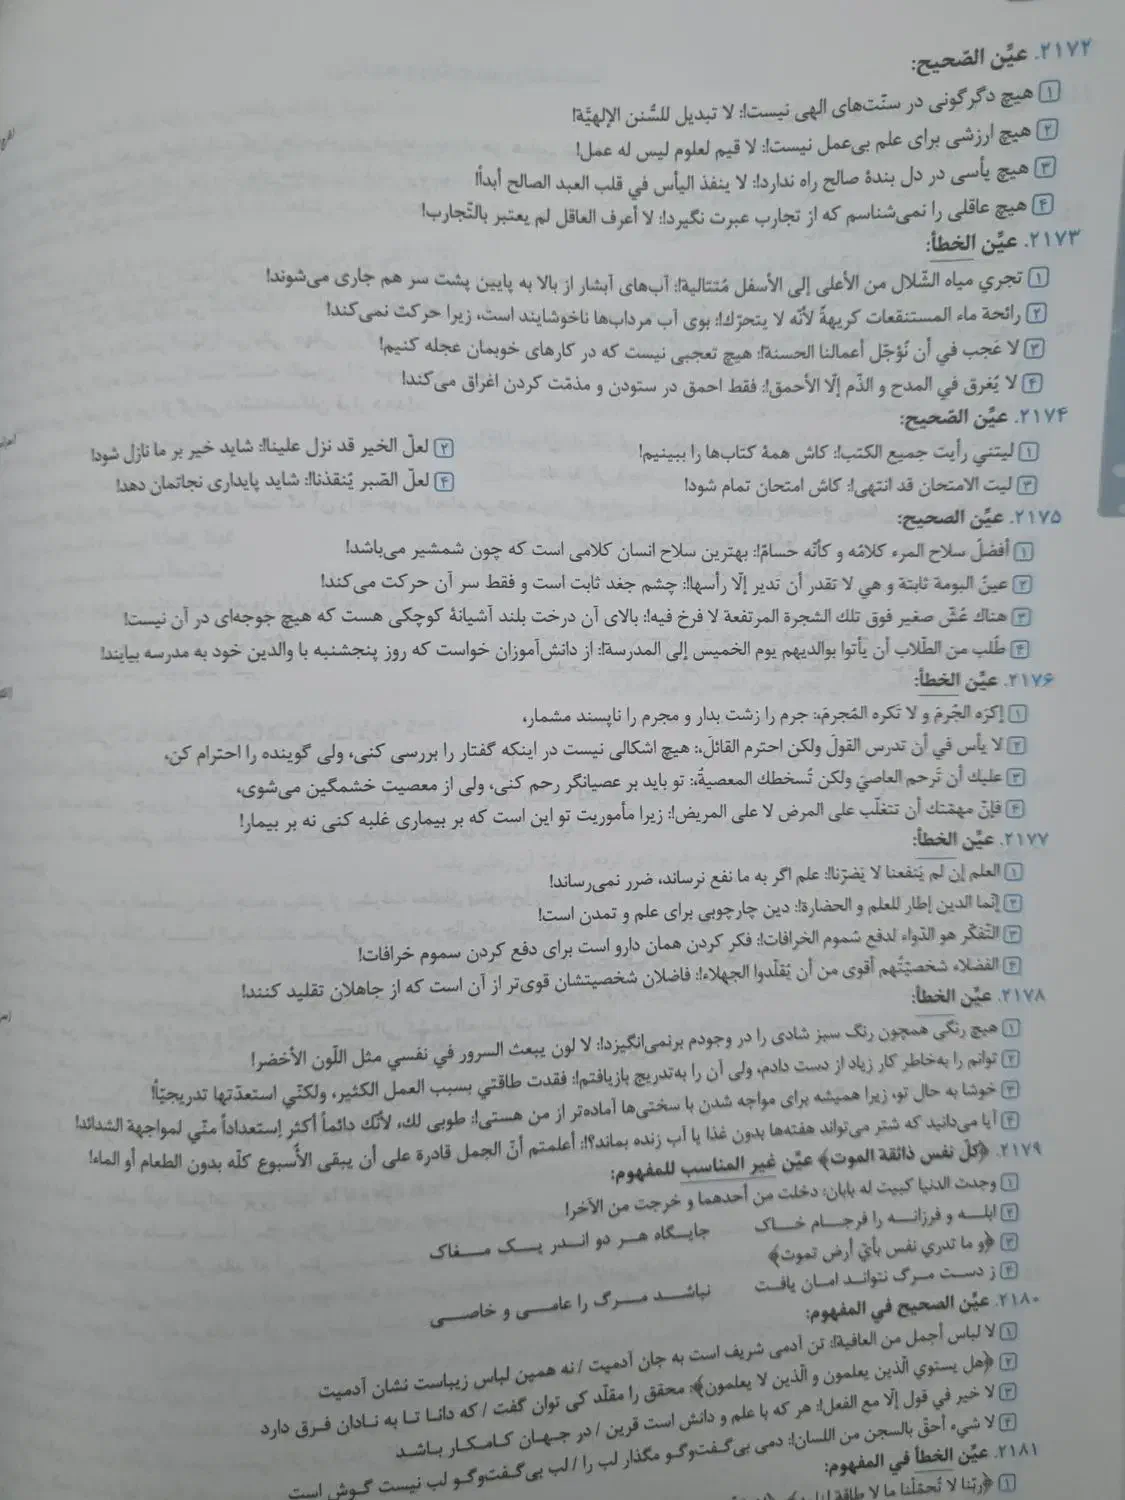 ۲۱۷۲. عیِّن الصّحیح:
۱ هیچ دگرگونی در سنّت‌های الهی نیست!: لا تبدیل للسُّنن الإلهیَّة!
۲ هیچ ارزشی برای علم بی‌عمل نیست!: لا قیم لعلوم لیس له عمل!
۳ هیچ یأسی در دل بندهٔ صالح راه ندارد!: لا ینفذ الیأس في قلب العبد الصالح أبداً!
۴ هیچ عاقلی را نمی‌شناسم که از تجارب عبرت نگیرد!: لا أعرف العاقل لم یعتبر بالتّجارب!
۲۱۷۳. عیِّن الخطأ:
۱ تجري میاه الشّلال من الأعلی إلی الأسفل مُتتالیة!: آب‌های آبشار از بالا به پایین پشت سر هم جاری می‌شوند!
۲ رائحة ماء المستنقعات کریهةٌ لأنّه لا یتحرّك!: بوی آب مرداب‌ها ناخوشایند است، زیرا حرکت نمی‌کند!
۳ لا عَجب في أن نُؤجّل أعمالنا الحسنة!: هیچ تعجبی نیست که در کارهای خوبمان عجله کنیم!
۴ لا یُغرق في المدح و الذّم إلّا الأحمق!: فقط احمق در ستودن و مذمّت کردن اغراق می‌کند!
۲۱۷۴. عیِّن الصّحیح:
۱ لیتني رأیت جمیع الکتب!: کاش همهٔ کتاب‌ها را ببینیم!
۲ لعلّ الخیر قد نزل علینا!: شاید خیر بر ما نازل شود!
۳ لیت الامتحان قد انتهی!: کاش امتحان تمام شود!
۴ لعلّ الصّبر یُنقذنا!: شاید پایداری نجاتمان دهد!
۲۱۷۵. عیِّن الصحیح:
۱ أفضلُ سلاح المرء کلامُه و کأنّه حسامٌ!: بهترین سلاح انسان کلامی است که چون شمشیر می‌باشد!
۲ عینُ البومة ثابتة و هي لا تقدر أن تُدیر إلّا رأسها!: چشم جغد ثابت است و فقط سر آن حرکت می‌کند!
۳ هناك عُشّ صغیر فوق تلك الشجرة المرتفعة لا فرخ فیه!: بالای آن درخت بلند آشیانهٔ کوچکی هست که هیچ جوجه‌ای در آن نیست!
۴ طُلب من الطّلاب أن یأتوا بوالدیهم یوم الخمیس إلی المدرسة!: از دانش‌آموزان خواست که روز پنجشنبه با والدین خود به مدرسه بیایند!
۲۱۷۶. عیِّن الخطأ:
۱ إکرَه الجُرمَ و لا تَکره المُجرمَ،: جرم را زشت بدار و مجرم را ناپسند مشمار،
۲ لا بأس في أن تدرس القولَ ولکن احترم القائلَ،: هیچ اشکالی نیست در اینکه گفتار را بررسی کنی، ولی گوینده را احترام کن،
۳ علیك أن تَرحم العاصيَ ولکن تُسخطك المعصیةُ،: تو باید بر عصیانگر رحم کنی، ولی از معصیت خشمگین می‌شوی،
۴ فإنّ مهمّتك أن تتغلّب علی المرض لا علی المریض!: زیرا مأموریت تو این است که بر بیماری غلبه کنی نه بر بیمار!
۲۱۷۷. عیِّن الخطأ:
۱ العلم إن لم یَنفعنا لا یَضرّنا!: علم اگر به ما نفع نرساند، ضرر نمی‌رساند!
۲ إنّما الدین إطار للعلم و الحضارة!: دین چارچوبی برای علم و تمدن است!
۳ التّفکّر هو الدّواء لدفع سُموم الخرافات!: فکر کردن همان دارو است برای دفع کردن سموم خرافات!
۴ الفضلاء شخصیّتُهم أقوی من أن یُقلّدوا الجهلاء!: فاضلان شخصیتشان قوی‌تر از آن است که از جاهلان تقلید کنند!
۲۱۷۸. عیِّن الخطأ:
۱ هیچ رنگی همچون رنگ سبز شادی را در وجودم برنمی‌انگیزد!: لا لون یبعث السرور في نفسي مثل اللّون الأخضر!
۲ توانم را به‌خاطر کار زیاد از دست دادم، ولی آن را به‌تدریج بازیافتم!: فقدت طاقتي بسبب العمل الکثیر، ولکنّي استعدّتها تدریجیّاً!
۳ خوشا به حال تو، زیرا همیشه برای مواجه شدن با سختی‌ها آماده‌تر از من هستی!: طوبی لك، لأنّك دائماً أکثر إستعداداً منّي لمواجهة الشدائد!
۴ آیا می‌دانید که شتر می‌تواند هفته‌ها بدون غذا یا آب زنده بماند؟!: أعلمتم أنّ الجمل قادرة علی أن یبقی الأسبوع کلّه بدون الطعام أو الماء!
۲۱۷۹. ﴿کلّ نفس ذائقة الموت﴾ عیِّن غیر المناسب للمفهوم:
۱ وجدت الدنیا کبیت له بابان: دخلت من أحدهما و خرجت من الآخر!
۲ ابلـــه و فرزانـــه را فرجـــام خـــاک جایـــگاه هـــر دو انـــدر یـــک مـــغاک
۳ ﴿و ما تدري نفس بأيّ أرض تموت﴾
۴ ز دست مـرگ نتوانـد امـان یافـت نباشـــد مـــرگ را عامـــی و خاصـــی
۲۱۸۰. عیِّن الصحیح في المفهوم:
۱ لا لباس أجمل من العافیة!: تن آدمی شریف است به جان آدمیت / نه همین لباس زیباست نشان آدمیت
۲ ﴿هل یستوي الّذین یعلمون و الّذین لا یعلمون﴾: محقق را مقلّد کی توان گفت / که دانا تـا به نـادان فـرق دارد
۳ لا خیر في قول إلّا مع الفعل!: هر که با علم و دانش است قرین / در جـهـان کـامـکار بـاشـد
۴ لا شيء أحقّ بالسجن من اللسان!: دمی بی‌گـفت‌وگـو مگذار لب را / لب بی‌گـفت‌وگـو لب نیست گـوش است
۲۱۸۱. عیِّن الخطأ في المفهوم:
۱ ﴿ربّنا لا تُحمّلنا ما لا طاقة لنا به﴾